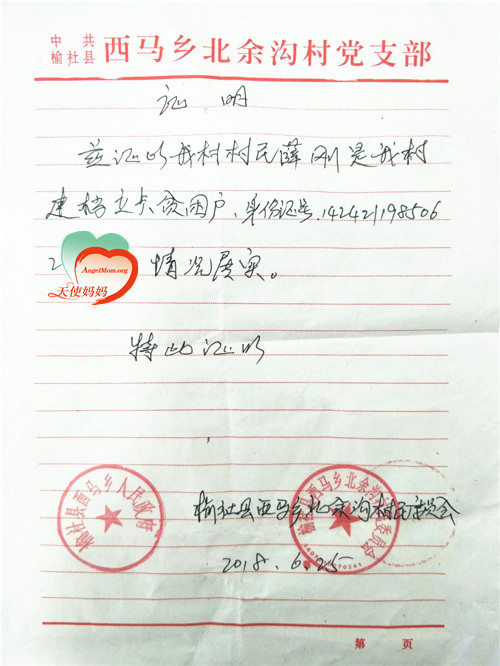 中共
榆社县 西马乡北余沟村党支部
证 明
兹证明我村村民薛刚是我村
建档立卡贫困户、身份证号,142421198506
2
AngelMom.org
天使妈妈
情况属实。
特此证明
榆社县西马乡人民政府
榆社县西马乡北余沟村民委员会
榆社县西马乡北余沟村民委员会
2018.6.25
第 页